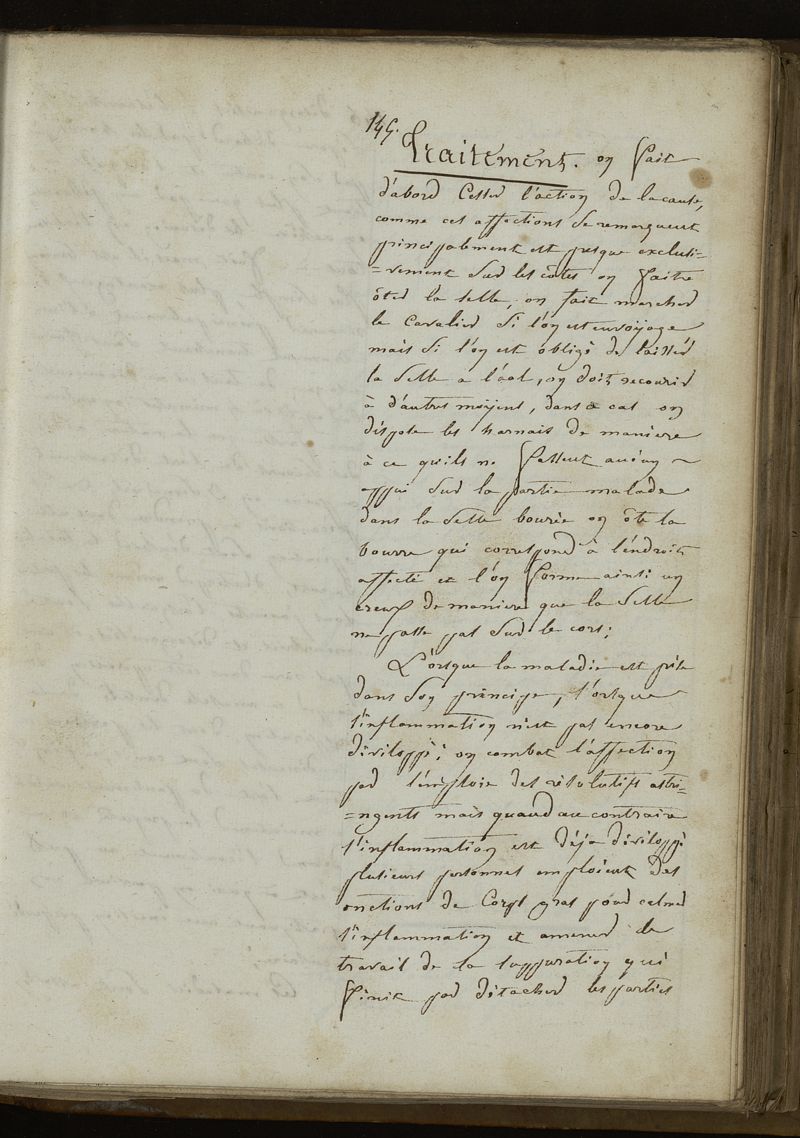 145.
Traitement. on fait
d'abord Cesser l'action de la cause,
comme cet affections se remarquent
principalement est presque exclusi=
=vement sur les côtes on faitre
ôter la selle, on fait marcher
le cavalier si l'on est en voyage
mais si l'on est obligé de laisser
la selle a l'ààl, on doit recourir
à d'autres moyens, dans ce cas on
dispose les harnais de maniere
à ce qu'ils ne fassent aucun ~
appui sur la partie malade
dans la selle bourée on ôte la
bourre qui correspond à l'endroit
affecté et l'on forme ainsi un
creux de maniere que la selle
ne passe pas sur le cors;
L'orsque la maladie est prise
dans son principe, l'orsque
l'inflammation n'est pas encore
diviloppé; on combat l'affection
par l'emploie des résolutifs astri=
=ngents mais quand au contraire
l'inflammation est déja diviloppé
plusieurs personnes emploient des
onctions de Corps gras pour calmer
l'inflammation et amener le
travail de la suppuration qui
finit par détacher les parties